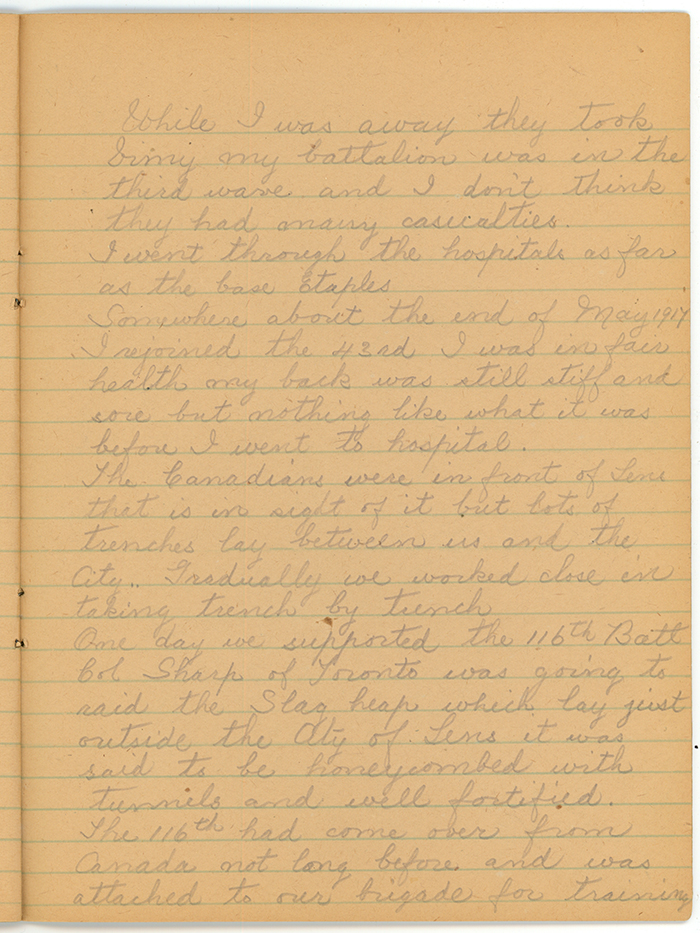 While I was away they took
Vimy my battalion was in the
third wave and I don't think
they had many casualties.
I went through the hospitals as far
as the base Etaples
Somewhere about the end of May 1917
I rejoined the 43rd I was in fair
health my back was still stiff and
sore but nothing like what it was
before I went to hospital.
The Canadians were in front of Lens
that is in sight of it but lots of
trenches lay between us and the
City.. Gradually we worked close in
taking trench by trench
One day we supported the 116th Batt
Col Sharp of Toronto was going to
raid the Slag heap which lay just
outside the City of Lens it was
said to be honeycombed with
tunnels and well fortified.
The 116th had come over from
Canada not long before and was
attached to our brigade for training